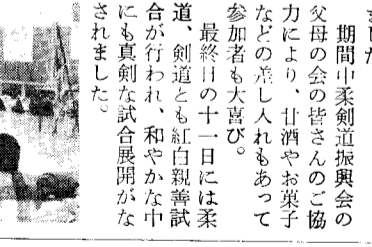 ました
期間中柔剣道振興会の
父母の会の皆さんのご協
力により、甘酒やお菓子
などの差し入れもあって
参加者も大喜び。
最終日の十一日には柔
道、剣道とも紅白親善試
合が行われ、和やかな中
にも真剣な試合展開がな
されました。